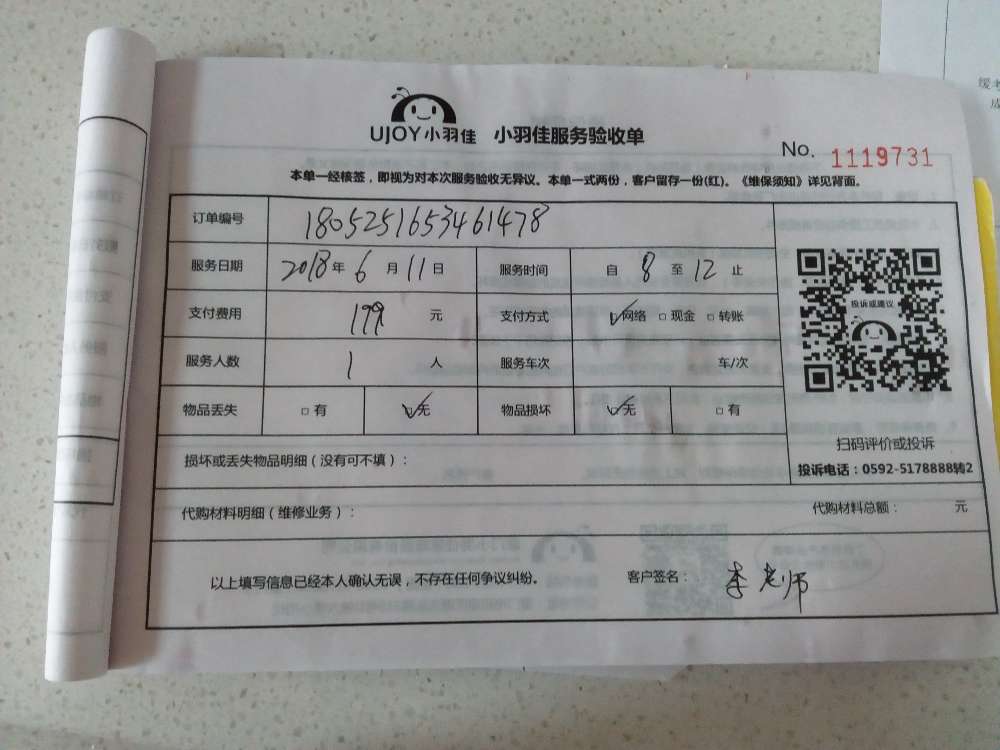 UJOY小羽佳 小羽佳服务验收单
No. 1119731
本单一经核签，即视为对本次服务验收无异议。本单一式两份，客户留存一份(红)。《维保须知》详见背面。
订单编号 1805251653461478
服务日期 2018年6月11日 服务时间 自8至12止
支付费用 199元 支付方式 ☑网络 □现金 □转账
投诉或建议
服务人数 1人 服务车次 车/次
物品丢失 □有 ☑无 物品损坏 ☑无 □有
扫码评价或投诉
损坏或丢失物品明细（没有可不填）：
投诉电话：0592-5178888转2
代购材料明细（维修业务）： 代购材料总额： 元
以上填写信息已经本人确认无误，不存在任何争议纠纷。 客户签名： 李老师